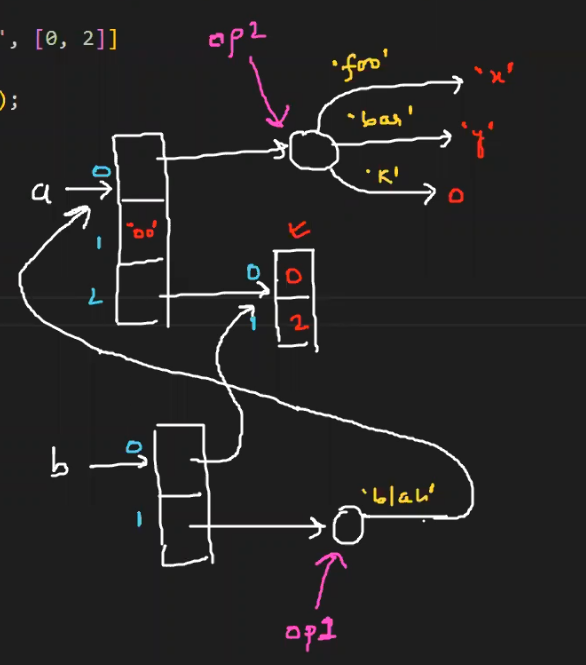 ', [0, 2]]
);
op2
'foo'
'x'
'bar'
'y'
'K'
0
a
0
1
'oo'
2
0
1
0
2
b
0
1
'blah'
op1